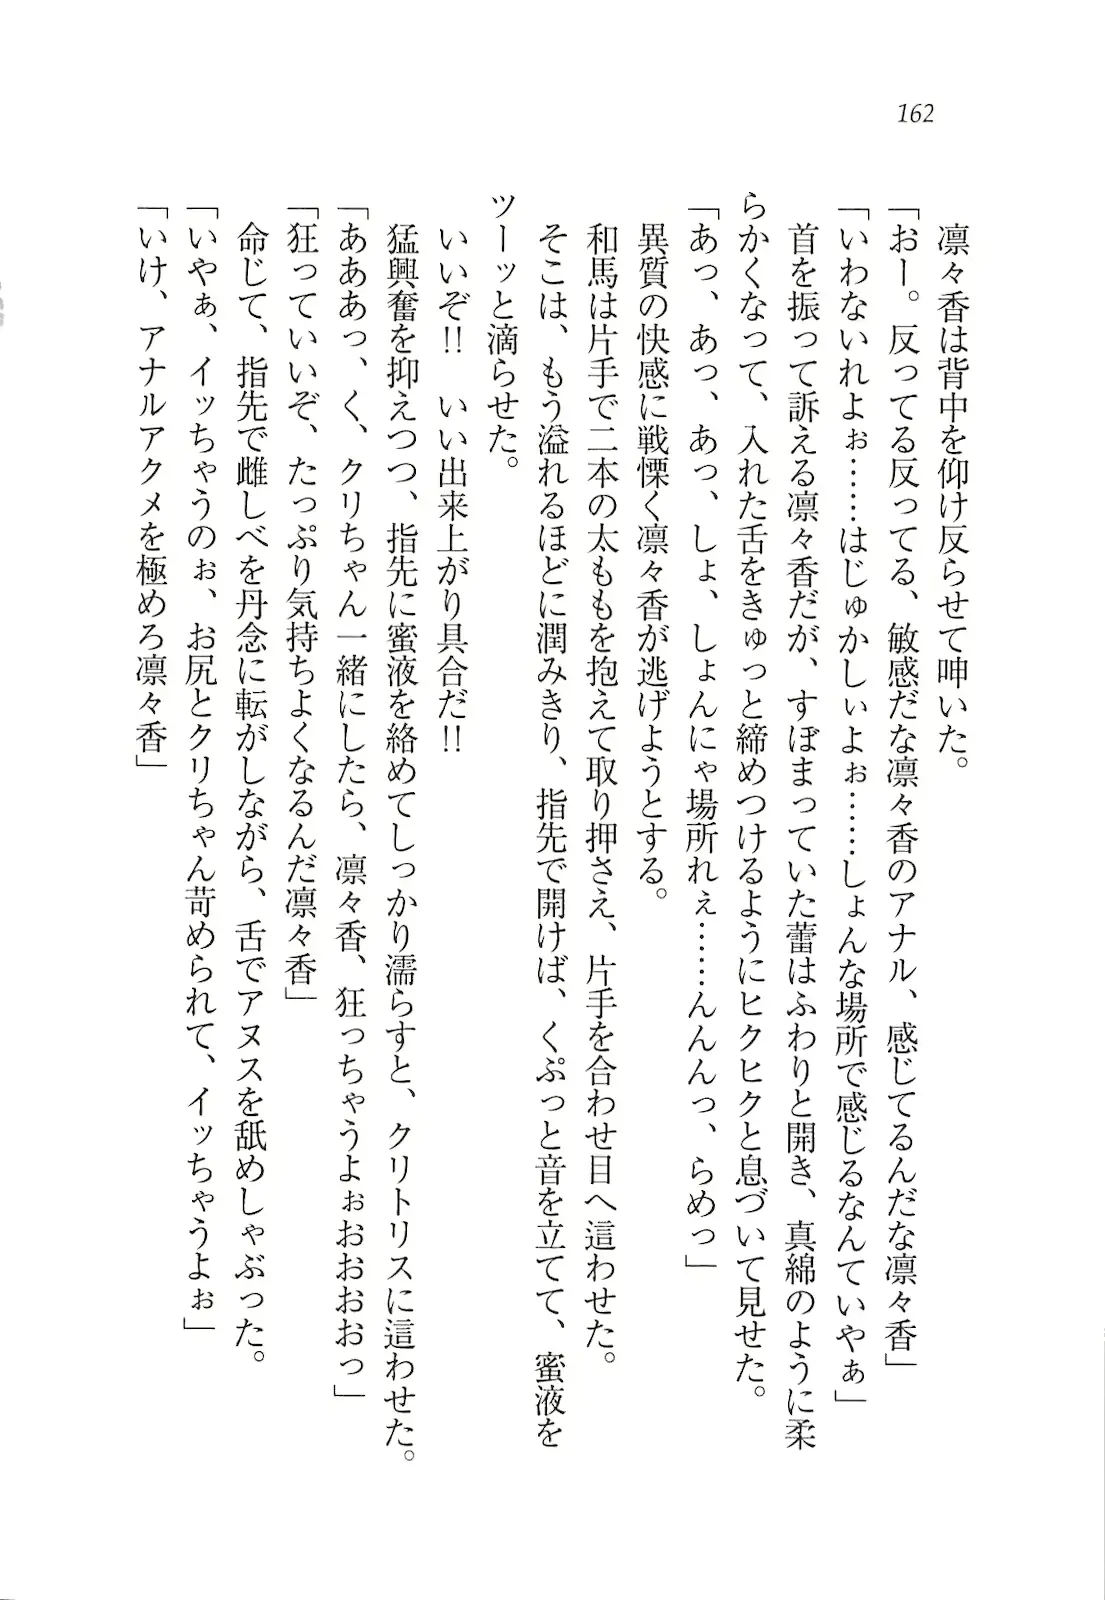 162
凛々香は背中を仰け反らせて呻いた。
「おー。反ってる反ってる、敏感だな凛々香のアナル、感じてるんだな凛々香」
「いわないれよぉ……はじゅかしぃよぉ……しょんな場所で感じるなんていやぁ」
首を振って訴える凛々香だが、すぼまっていた蕾はふわりと開き、真綿のように柔
らかくなって、入れた舌をきゅっと締めつけるようにヒクヒクと息づいて見せた。
「あっ、あっ、あっ、しょ、しょんにゃ場所れぇ……んんんっ、らめっ」
異質の快感に戦慄く凛々香が逃げようとする。
和馬は片手で二本の太ももを抱えて取り押さえ、片手を合わせ目へ這わせた。
そこは、もう溢れるほどに潤みきり、指先で開けば、くぷっと音を立てて、蜜液を
ツーッと滴らせた。
いいぞ!!　いい出来上がり具合だ!!
猛興奮を抑えつつ、指先に蜜液を絡めてしっかり濡らすと、クリトリスに這わせた。
「あああっ、く、クリちゃん一緒にしたら、凛々香、狂っちゃうよぉおおおおっ」
「狂っていいぞ、たっぷり気持ちよくなるんだ凛々香」
命じて、指先で雌しべを丹念に転がしながら、舌でアヌスを舐めしゃぶった。
「いやぁ、イッちゃうのぉ、お尻とクリちゃん苛められて、イッちゃうよぉ」
「いけ、アナルアクメを極めろ凛々香」